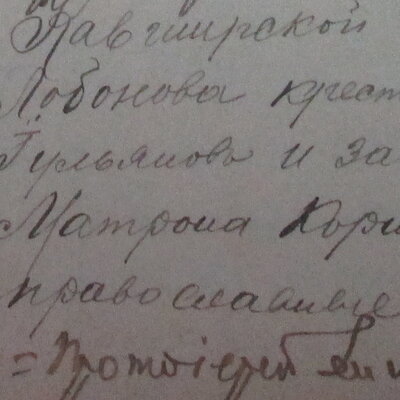 Кавширской
Лобонова крест
Гульяновъ и за
Матрона Корн
православные
= Протоіерей